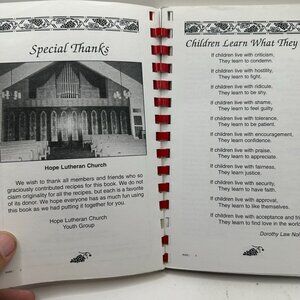 Special Thanks
Hope Lutheran Church
We wish to thank all members and friends who so
graciously contributed recipes for this book. We do not
claim originality for all the recipes, but each is a favorite
of its donor. We hope everyone has as much fun using
this book as we had putting it together for you.
Hope Lutheran Church
Youth Group
Children Learn What They
If children live with criticism,
They learn to condemn.
If children live with hostility,
They learn to fight.
If children live with ridicule,
They learn to be shy.
If children live with shame,
They learn to feel guilty.
If children live with tolerance,
They learn to be patient.
If children live with encouragement,
They learn confidence.
If children live with praise,
They learn to appreciate.
If children live with fairness,
They learn justice.
If children live with security,
They learn to have faith.
If children live with approval,
They learn to like themselves.
If children live with acceptance and
They learn to find love in the
Dorothy Law